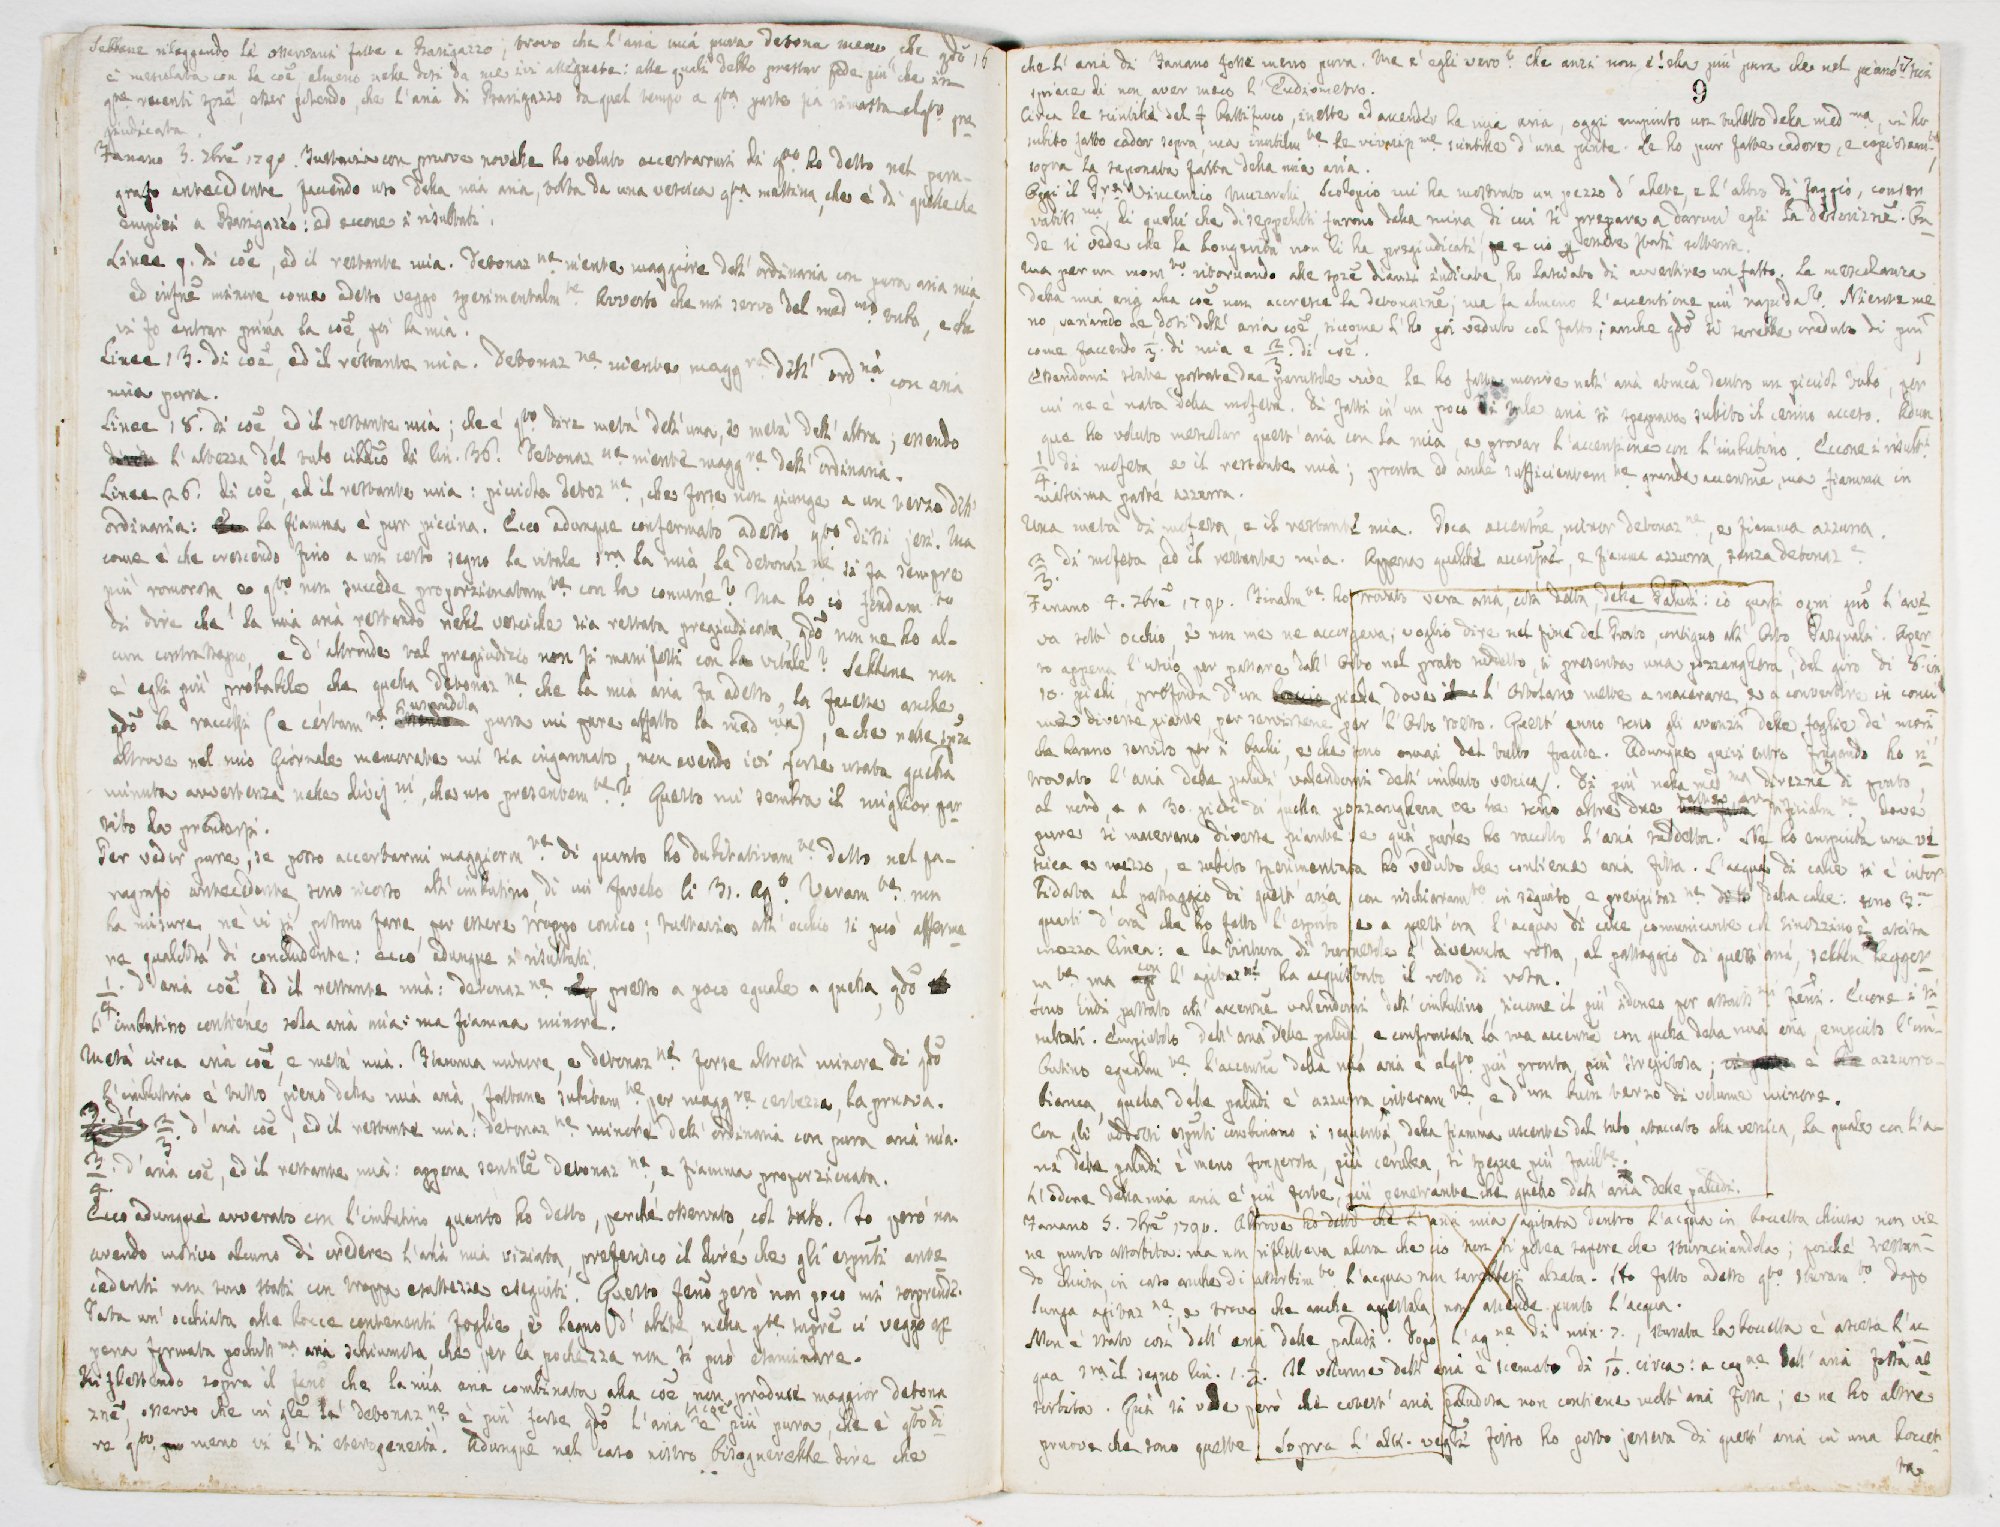 Sebbene rileggendo le osservazni fatte a Barigazzo, trovo che l'aria mia pura detona meno che qdo 16
è mescolata con la coe, almeno nelle dosi da me ivi assegnate: alle quali debbo prestar fede più che
recenti essendo, che l'aria di Barigazzo da quel tempo a qta parte sia rimasta alqto pre
giudicata.
Fanano 3. 7bre 1790. Tuttavia con pruove novelle ho voluto accertarmi di qto ho detto nel para-
grafo antecedente, facendo uso della mia aria, tolta da una vescica qta mattina, che è di quelle che
empiei a Barigazzo: ed eccone i risultati.
Linee 9. di coe, ed il restante mia. Detonaz ne niente maggiore dell'ordinaria con pura aria mia
ed infne minore, come adesso veggo sperimentalm te. Avverto che mi servo del med mo tubo, e che
vi fo entrar prima la coe, poi la mia.
Linee 13. di coe, ed il restante mia. Detonaz ne niente magg re dell' ord na con aria
mia pura.
Linee 18. di coe ed il restante mia; che è qto dire metà dell'una, e metà dell'altra; essendo
l'altezza del tubo di lin. 36. Detonaz ne niente magg re dell' ordinaria.
Linee 26. di coe, ed il restante mia: picciola detoz ne, che forse non giunge a un terzo dell'
ordinaria: la fiamma è pur piccina. Ecco adunque confermato adesso qto dissi jeri. Ma
come è che crescendo fino a un certo segno la vitale tra la mia la detonaz ne si fa sempre
più romorosa e qto non succede proporzionatam te con la comune? Ma ho io fondam to
di dire che la mia aria restando nelle vesciche sia restata pregiudicata, qdo non ne ho al-
cun contrassegno, e d'altronde tal pregiudizio non si manifesti con la vitale? Sebbene non
è egli più probabile che quella detonaz ne che la mia aria fa adesso, la facesse anche
qdo la raccolsi (e certam te usandola pura mi pare affatto la med ma), e che nelle spze
altrove nel mio Giornale memorate mi sia ingannato, non avendo ivi forse usata quella
minuta avvertenza nelle divis ni, che uso presentem te? Questo mi sembra il miglior par
tito da prendersi.
Per veder pure, se posso accertarmi maggiorm te di quanto ho dubitativam te detto nel pa-
ragrafo antecedente sono ricorso all'imbutino, di cui favello li 31. Ag to. Veram te non
ha misure, nè vi si possono fare per essere troppo conico; tuttavia all'occhio si può afferma-
re qualcosa di concludente: ecco adunque i risultati.
1/4. d'aria coe, ed il restante mia: detonaz ne presso a poco eguale a quella, qdo
l'imbutino contiene sola aria mia: ma fiamma minore.
Metà circa aria coe, e metà mia. Fiamma minore, e detonaz ne forse altresì minore di qdo
l'imbutino è tutto pieno della mia aria, fattane subitam te per magg re certezza, la pruova.
2/3. d'aria coe, ed il restante mia: detonaz ne minore dell'ordinaria con pura aria mia.
3/4. d'aria coe, ed il restante mia: appena sentile detonaz ne, e fiamma proporzionata.
Ecco adunque avverato con l'imbutino quanto ho detto, perchè osservato col tubo. Io però non
avendo motivo alcuno di credere l'aria mia viziata, preferisco il dire che gli espmti ante
cedenti non sono stati con troppa esattezza eseguiti. Questo feno però non poco mi sorprende.
Data un'occhiata alle bocce contenenti foglie, e legno d'abete, nella pte supre ci veggo ap
pena formata pochiss ma aria schiumosa, che per la pochezza non si può esaminare.
Riflettendo sopra il feno che la mia aria combinata alla coe non produce maggior detona
zne, osservo che in gle la detonaz ne è più forte qdo l'aria è più pura, che è qto di
re qto meno vi è di eterogeneità. Adunque nel caso nostro bisognerebbe dire che
che l'aria di Fanano fosse meno pura. Ma è egli vero? Che anzi non è ella più pura che nel piano? Mi
spiace di non aver meco l'Eudiometro. 17
9
Circa le scintille del battifuoco, inette ad accender la mia aria, oggi empiuto un tubetto della med ma, vi ho
subito fatto cader sopra, ma inutilm te le vivissime scintille d'una pietra. Le ho pur fatte cadere, e copiosam te,
sopra la saponata fatta della mia aria.
Oggi il Pre Vincenzio Scolopio mi ha mostrato un pezzo d'abete, e l'altro di faggio, conser
vatiss mi, di quelli che diseppelliti furono dalla ruina, di cui si prepara a darmi egli la descrizne. On
de si vede che la longevità non li ha pregiudicati, e ciò per essere stati sotterra.
Ma per un mom to ritornando alle spze dianzi indicate, ho lasciato di avvertire un fatto. La mescolanza
della mia aria alla coe non accresce la detonazne; ma fa almeno l'accensione più rapida? Niente me
no, variando le dosi dell'aria coe, siccome l'ho poi veduto col fatto; anche qdo si sarebbe creduto di più,
come facendo 1/3. di mia e 2/3. di coe.
Essendomi state portate due vive le ho fatte morire nell'aria atmca dentro un picciol tubo, per
cui ne è nata della mofeta. Di fatti in un poco di tale aria si spegneva subito il cerino acceso. Adun
que ho voluto mescolar quest'aria con la mia, e provar l'accensione con l'imbutino. Eccone i risulti.
1/4 di mofeta e il restante mia; pronta ed anche sufficientem te grande accensne, ma fiamma in
massima parte azzurra.
Una metà di mofeta, e il restante mia. Poca accensne, minor detonaz ne, e fiamma azzurra.
2/3. di mofeta, ed il restante mia. Appena qualche accensne, e fiamma azzurra, senza detonaz e.
Fanano 4. 7bre 1790. Finalm te ho trovato vera aria, così detta, delle Paludi: io quasi ogni gno l'ave
va sott'occhio e non me ne accorgeva; voglio dire nel fine del Prato, contiguo all'Orto Pasquali. Aper
to appena l'uscio per passare dall'Orto nel prato suddetto, si presenta una pozzanghera, del giro di 8. in
10. piedi, profonda d'un piede dove l'Ortolano mette a macerare, e a convertire in conci
me diverse piante, per servirsene per l'Orto stesso. Quest'anno sono gli avanzi delle foglie de' mori
che hanno servito per i bachi, e che sono omai del tutto fracide. Adunque quivi entro frugando ho ri
trovato l'aria delle paludi valendomi dell'imbuto vescica. Di più nella med ma direzne di prato,
al nord, e a 30. piedi di quella pozzanghera ve ne sono altre due artificialm te, dove
pure si macerano diverse piante, e qui pure ho raccolto l'aria suddetta. Ne ho empiuta una ve
scica e mezzo, e subito sperimentata ho veduto che contiene aria fissa. L'acqua di calce si è intor
bidata al passaggio di quest'aria, con rischiaram to in seguito, e precipitaz ne della calce: sono 3.
quarti d'ora che ho fatto l'espmto e a quest'ora l'acqua di calce, comunicante col tinozzino è ascesa
mezza linea: e la tintura di tornasole è divenuta rossa, al passaggio di quest'aria, sebben legger
m te ma con l'agitaz ne ha acquistato il rosso di rosa.
Sono indi passato all'accensne valendomi dell'imbutino, siccome il più idoneo per . Eccone i ri
sultati. Empiutolo dell'aria delle paludi, e confrontata la sua accensne con quella della mia aria, empiuto l'im-
butino egualm te l'accensne della mia aria è alqto più pronta, più strepitosa; e azzurro-
bianca, quella delle paludi è azzurra interam te, e d'un buon terzo di volume minore.
Con gli addotti espmti combinano i seguenti della fiamma uscente dal tubo attaccato alla vescica, la quale con l'a-
ria delle paludi è meno fragorosa, più cerulea, si spegne più facilte.
L'odore della mia aria è più forte, più penetrante che quello dell'aria delle paludi.
Fanano 5. 7bre 1790. Altrove ho detto che l'aria mia agitata dentro l'acqua in boccetta chiusa non vie
ne punto assorbita: ma non rifletteva allora che ciò non si potea sapere che sturacciandola; poichè restan-
do chiusa, in caso anche di assorbim to l'acqua non sarebbesi alzata. Ho fatto adesso qto sturam to dopo
lunga agitaz ne, e trovo che anche apertala non ascende punto l'acqua.
Non è stato così dell'aria delle paludi. Dopo l'ag ne di min. 7., sturata la boccetta è ascesa l'ac
qua tra il segno lin. 1. 1/2. Il volume dell'aria è scemato di 1/10. circa: a cagne dell'aria fissa as
sorbita. Qui si vede però che cotest'aria paludosa non contiene molt'aria fissa; e ne ho altre
pruove che sono queste. Sopra l'alk. vegble fisso ho posto jersera di quest'aria in una boccet-
ta